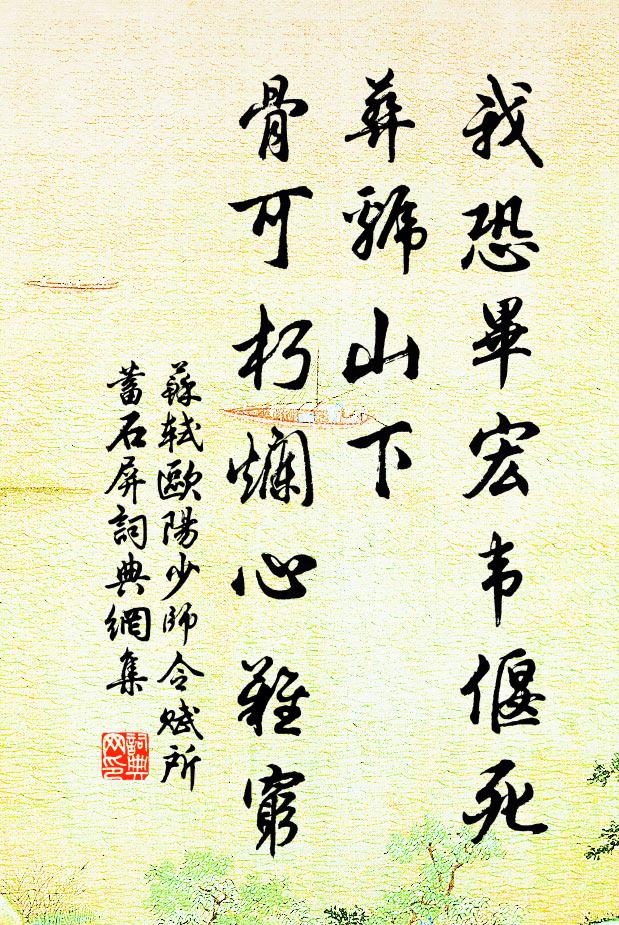 我恐畢宏韦偃死
葬虢山下
骨可朽爛心難窮
蘇軾歐陽少師令賦所
蓄石屏詞典網集
詞典
网印